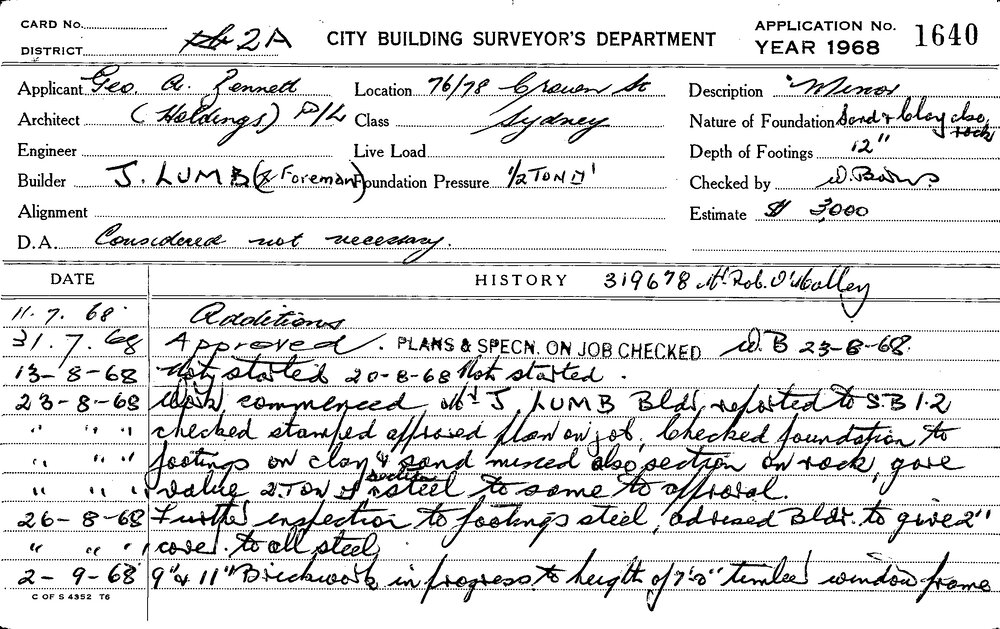 CARD No.
DISTRICT 2A
CITY BUILDING SURVEYOR'S DEPARTMENT
APPLICATION No. 1640
YEAR 1968
Applicant Geo. A. Rennett
Location 76/78 Crown St
Description "Minor
Architect (Holdings) P/L
Class Sydney
Nature of Foundation Sand & Clay also rock
Engineer
Live Load
Depth of Footings 12"
Builder J. LUMB (Foreman)
Foundation Pressure 1/2 TON
Checked by W. 
Alignment
Estimate $ 3,000
D.A. Considered not necessary.
DATE HISTORY 319678 Mr Rob. O'Malley
11. 7. 68. Additions
31. 7. 68 Approved. PLANS & SPECN. ON JOB CHECKED W.B 23-8-68.
13-8-68 Not started 20-8-68 Not started.
23-8-68 Work commenced Mr J LUMB Bldr, reported to S.B 1.2
" " " checked stamped approved plan on job, Checked foundation to
" " " footings on clay & sand mixed also section on rock, gave
" " " value 2. TON section steel to same to approval.
26-8-68 Further inspection to footings steel, advised Bldr. to give 2"
" " " cover to all steel,
2-9-68 9" & 11" Brickwork in progress to height of 7'-0" timber window frame
C OF S 4352 T6